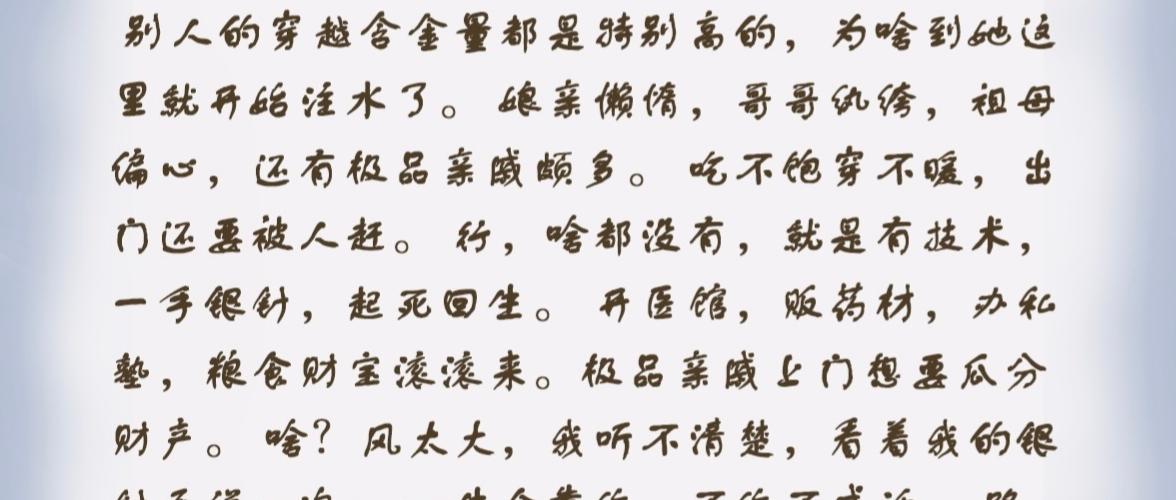 别人的穿越含金量都是特别高的，为啥到她这
里就开始注水了。 娘亲懒惰，哥哥纨绔，祖母
偏心，还有极品亲戚颇多。 吃不饱穿不暖，出
门还要被人赶。 行，啥都没有，就是有技术，
一手银针，起死回生。 开医馆，贩药材，办私
塾，粮食财宝滚滚来。极品亲戚上门想要瓜分
财产。 啥？风太大，我听不清楚，看着我的银